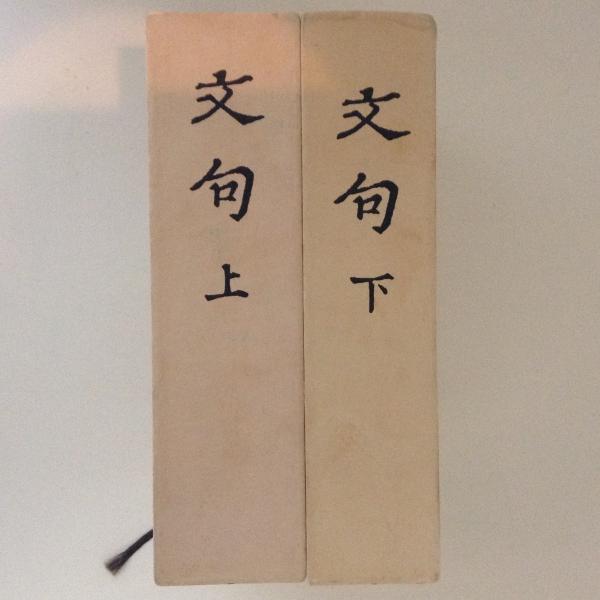 文句上
文句下